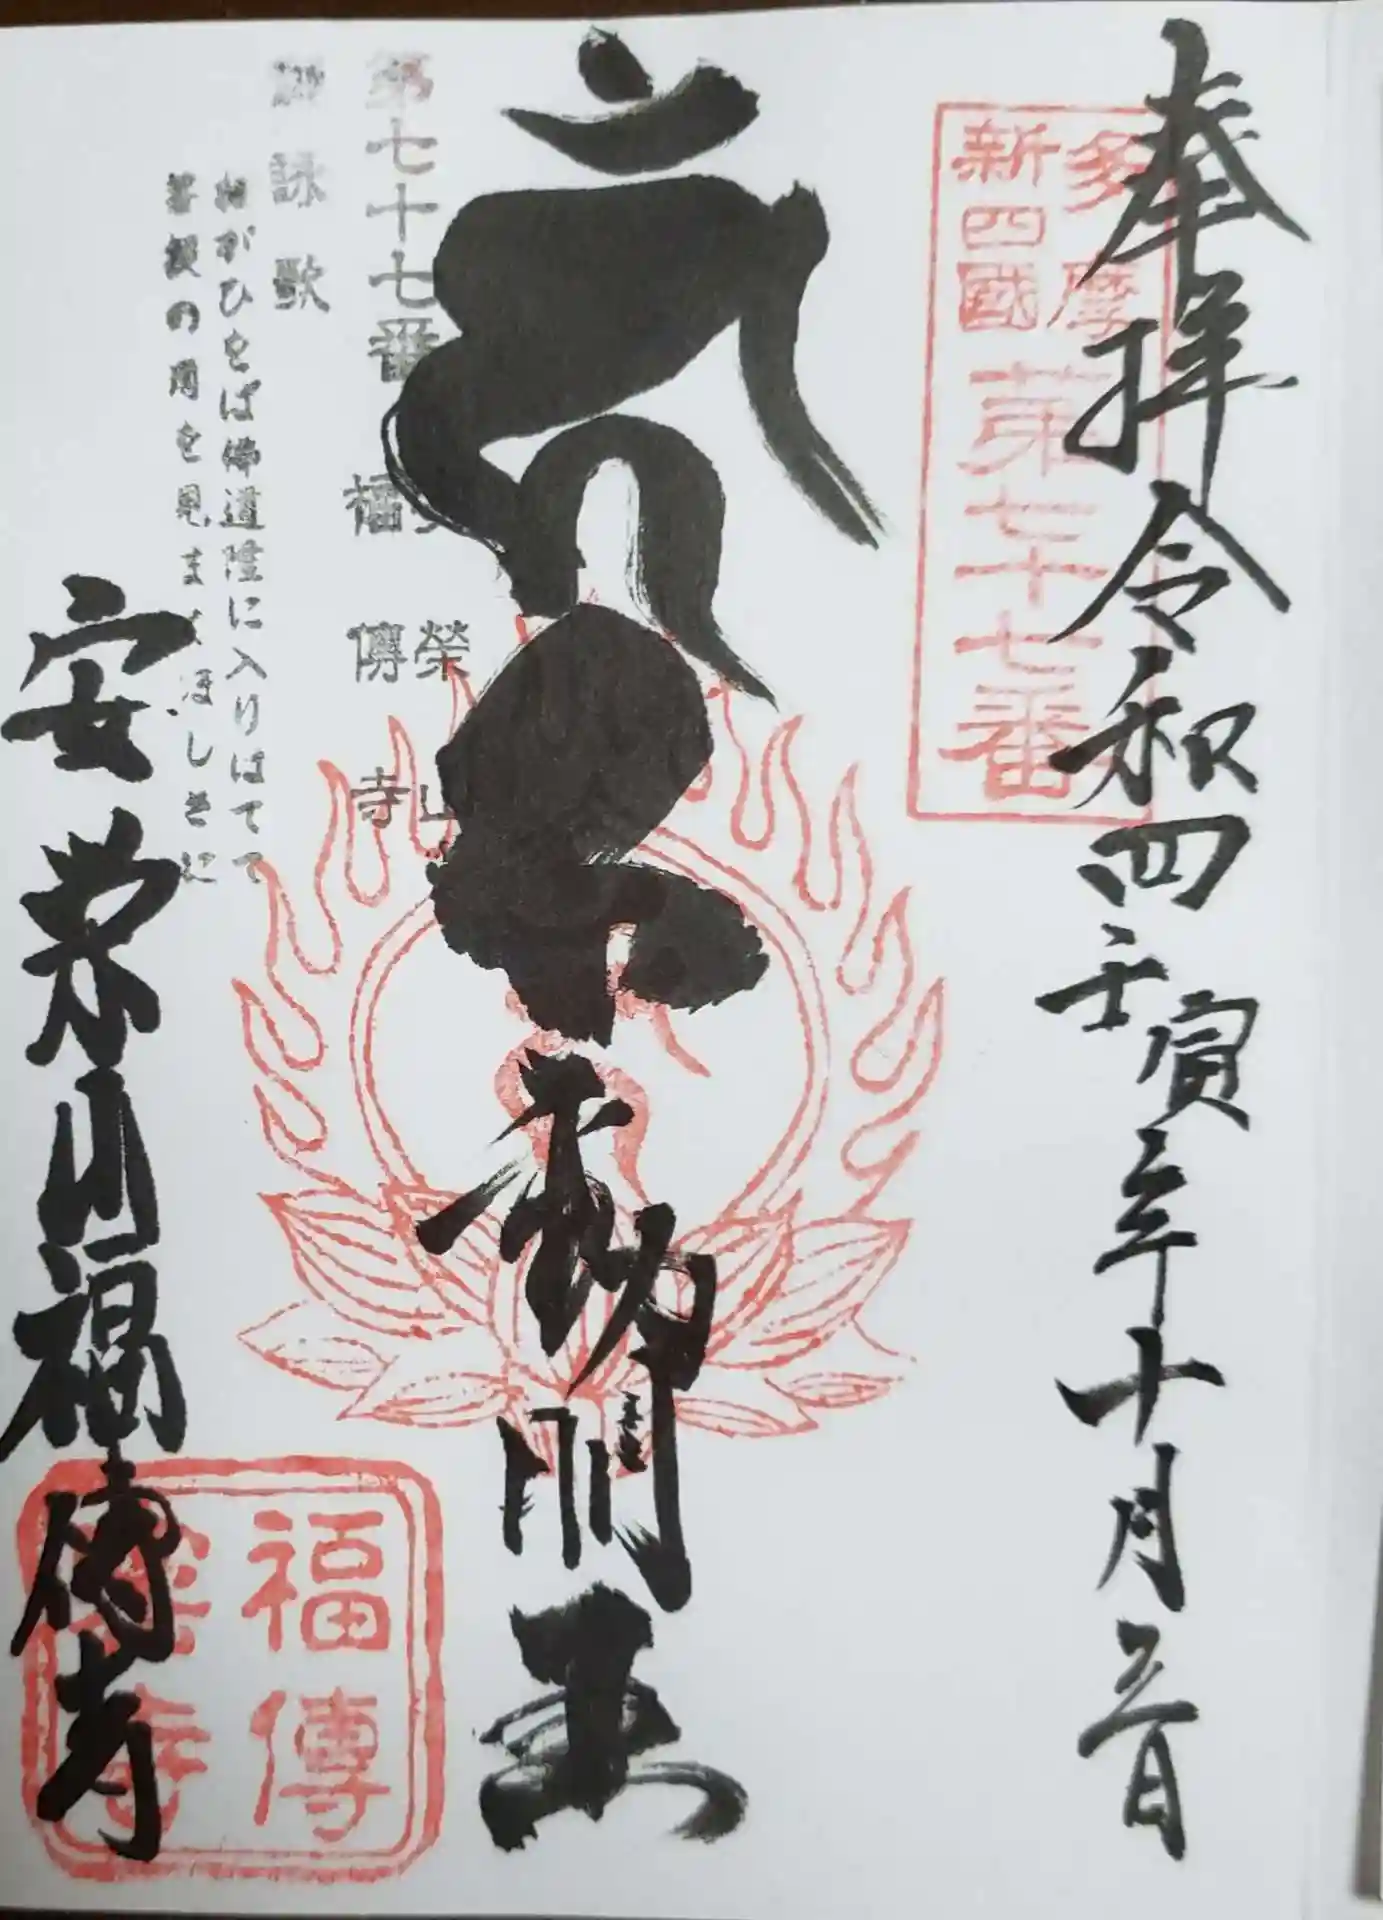 奉拝 令和四壬寅年十月三日
多摩
新四國
第七十七番
不動明王
第七十七番
榮
福傳寺
詠歌
ねがひをば佛道隆に入りはてて
菩提の月を見まくほしさに
安栄山福傳寺
福傳